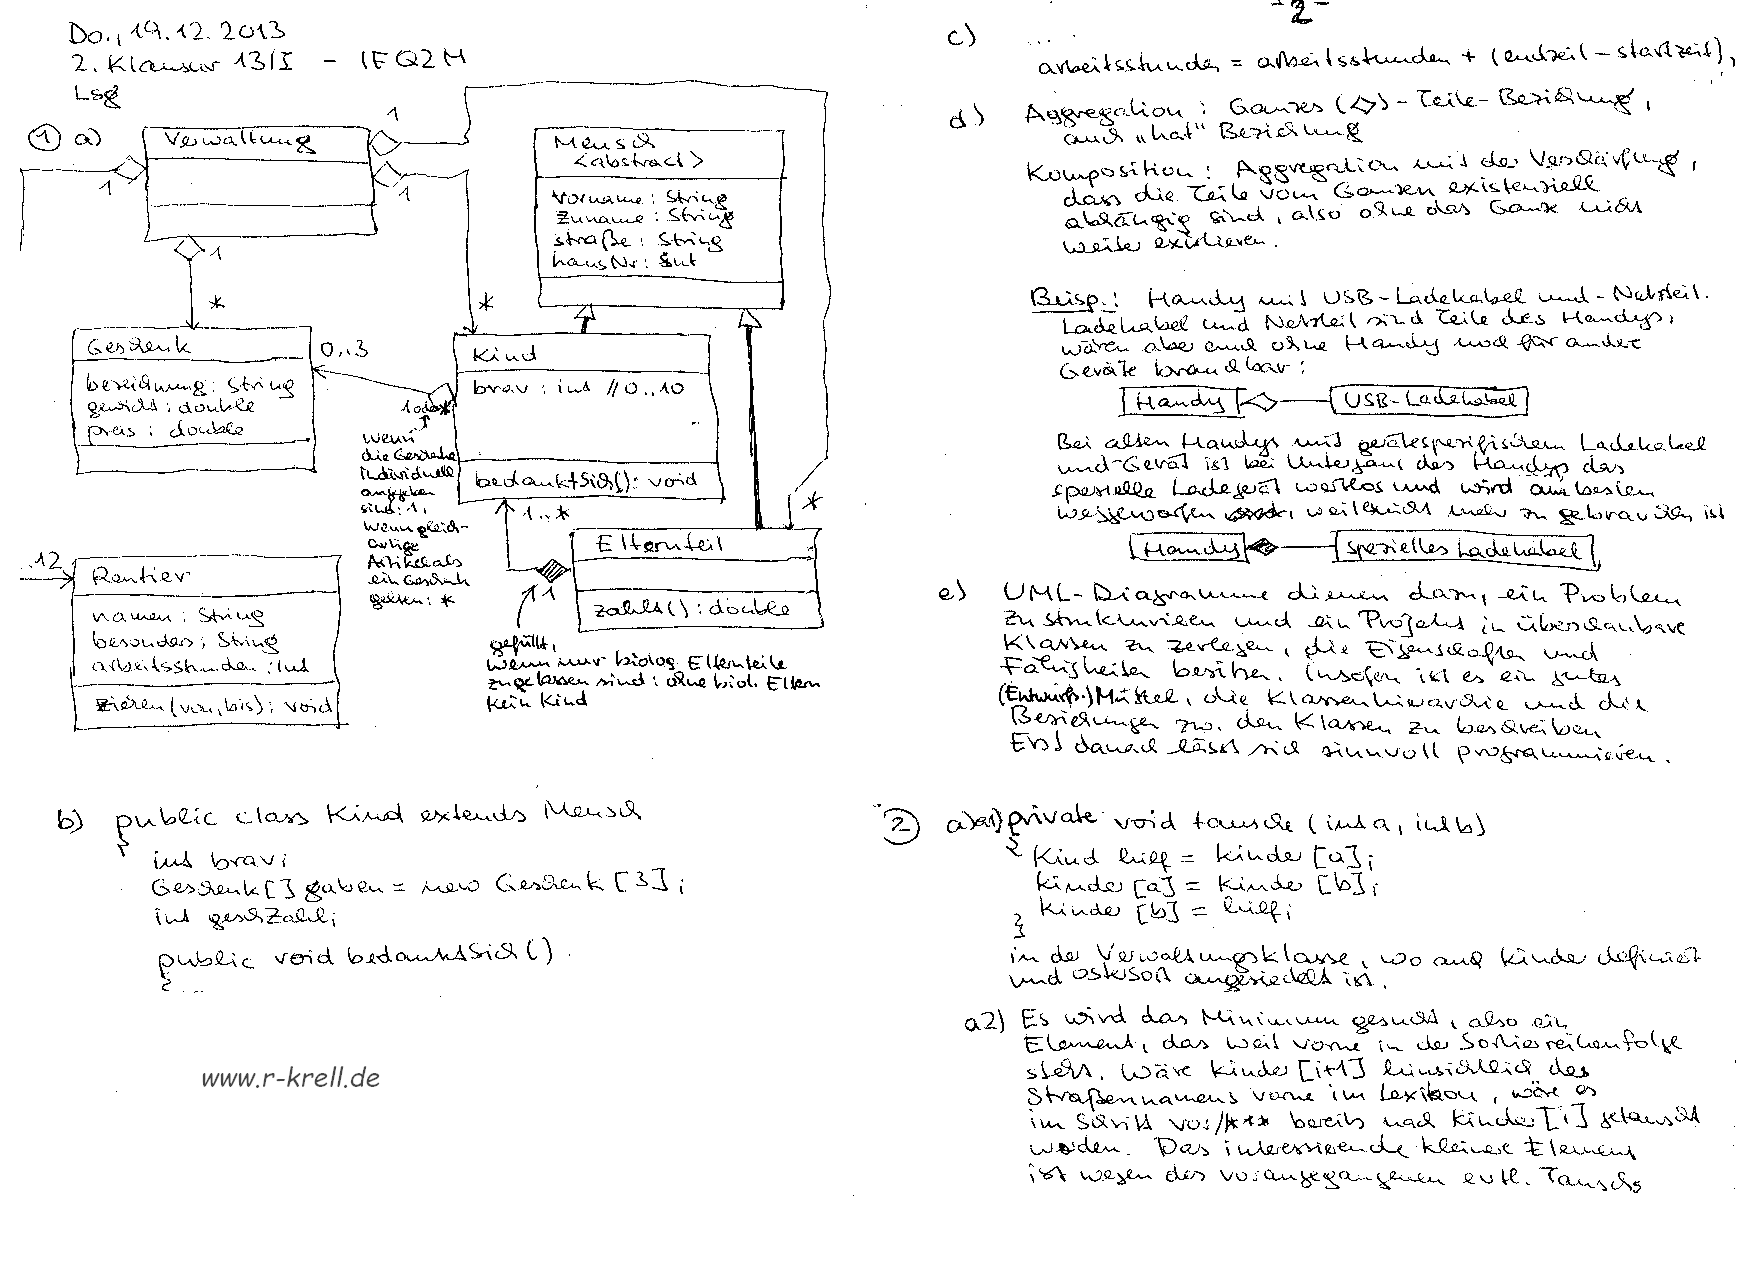 Do., 19.12.2013
2. Klausur 13/I - IFQ2M
Lsg
① a)
Verwaltung
1
1
1
1
*
*
*
Mensch
<abstract>
vorname : String
zuname : String
straße : String
hausNr : int
Geschenk
bezeichnung : String
gewicht : double
preis : double
0..3
Kind
brav : int // 0..10
bedanktSich() : void
1 oder *
wenn
die Geschenke
individuell
angegeben
sind : 1,
wenn gleich-
artige
Artikel als
ein Geschenk
gelten : *
1..*
Elternteil
zahlt() : double
1
gefüllt,
wenn nur biolog. Elternteile
zugelassen sind : ohne biol. Eltern
kein Kind
..12
Rentier
namen : String
besonders : String
arbeitsstunden : int
ziehen (von, bis) : void
b) public class Kind extends Mensch
{
int brav;
Geschenk[] gaben = new Geschenk [3];
int geschZahl;
public void bedanktSich()
{ ...
www.r-krell.de
-2-
c) ...
arbeitsstunden = arbeitsstunden + (endzeit - startzeit);
d) Aggregation : Ganzes (◇) - Teile - Beziehung,
auch „hat" Beziehung
Komposition : Aggregation mit der Verschärfung,
dass die Teile vom Ganzen existenziell
abhängig sind, also ohne das Ganze nicht
weiter existieren.
Beisp.: Handy mit USB-Ladekabel und -Netzteil.
Ladekabel und Netzteil sind Teile des Handys,
wären aber auch ohne Handy noch für andere
Geräte brauchbar :
Handy
USB-Ladekabel
Bei alten Handys mit gerätespezifischem Ladekabel
und -Gerät ist bei Untergang des Handys das
spezielle Ladegerät wertlos und wird am besten
weggeworfen, weil nicht mehr zu gebrauchen ist
Handy
spezielles Ladekabel
e) UML-Diagramme dienen dazu, ein Problem
zu strukturieren und ein Projekt in überschaubare
Klassen zu zerlegen, die Eigenschaften und
Fähigkeiten besitzen. Insofern ist es ein gutes
(Entwurfs-) Mittel, die Klassenhierarchie und die
Beziehungen zw. den Klassen zu beschreiben
Erst danach lässt sich sinnvoll programmieren.
② a) a1) private void tausche (int a, int b)
{
Kind hilf = kinder [a];
kinder [a] = kinder [b];
kinder [b] = hilf;
}
in der Verwaltungsklasse, wo auch kinder definiert
und osterSort angesiedelt ist.
a2) Es wird das Minimum gesucht, also ein
Element, das weit vorne in der Sortierreihenfolge
steht. Wäre kinder [i+1] hinsichtlich des
Straßennamens vorne im Lexikon, wäre es
im Schritt vor /*** bereits nach kinder [i] getauscht
worden. Das interessierende kleinere Element
ist wegen des vorangegangenen evtl. Tauschs